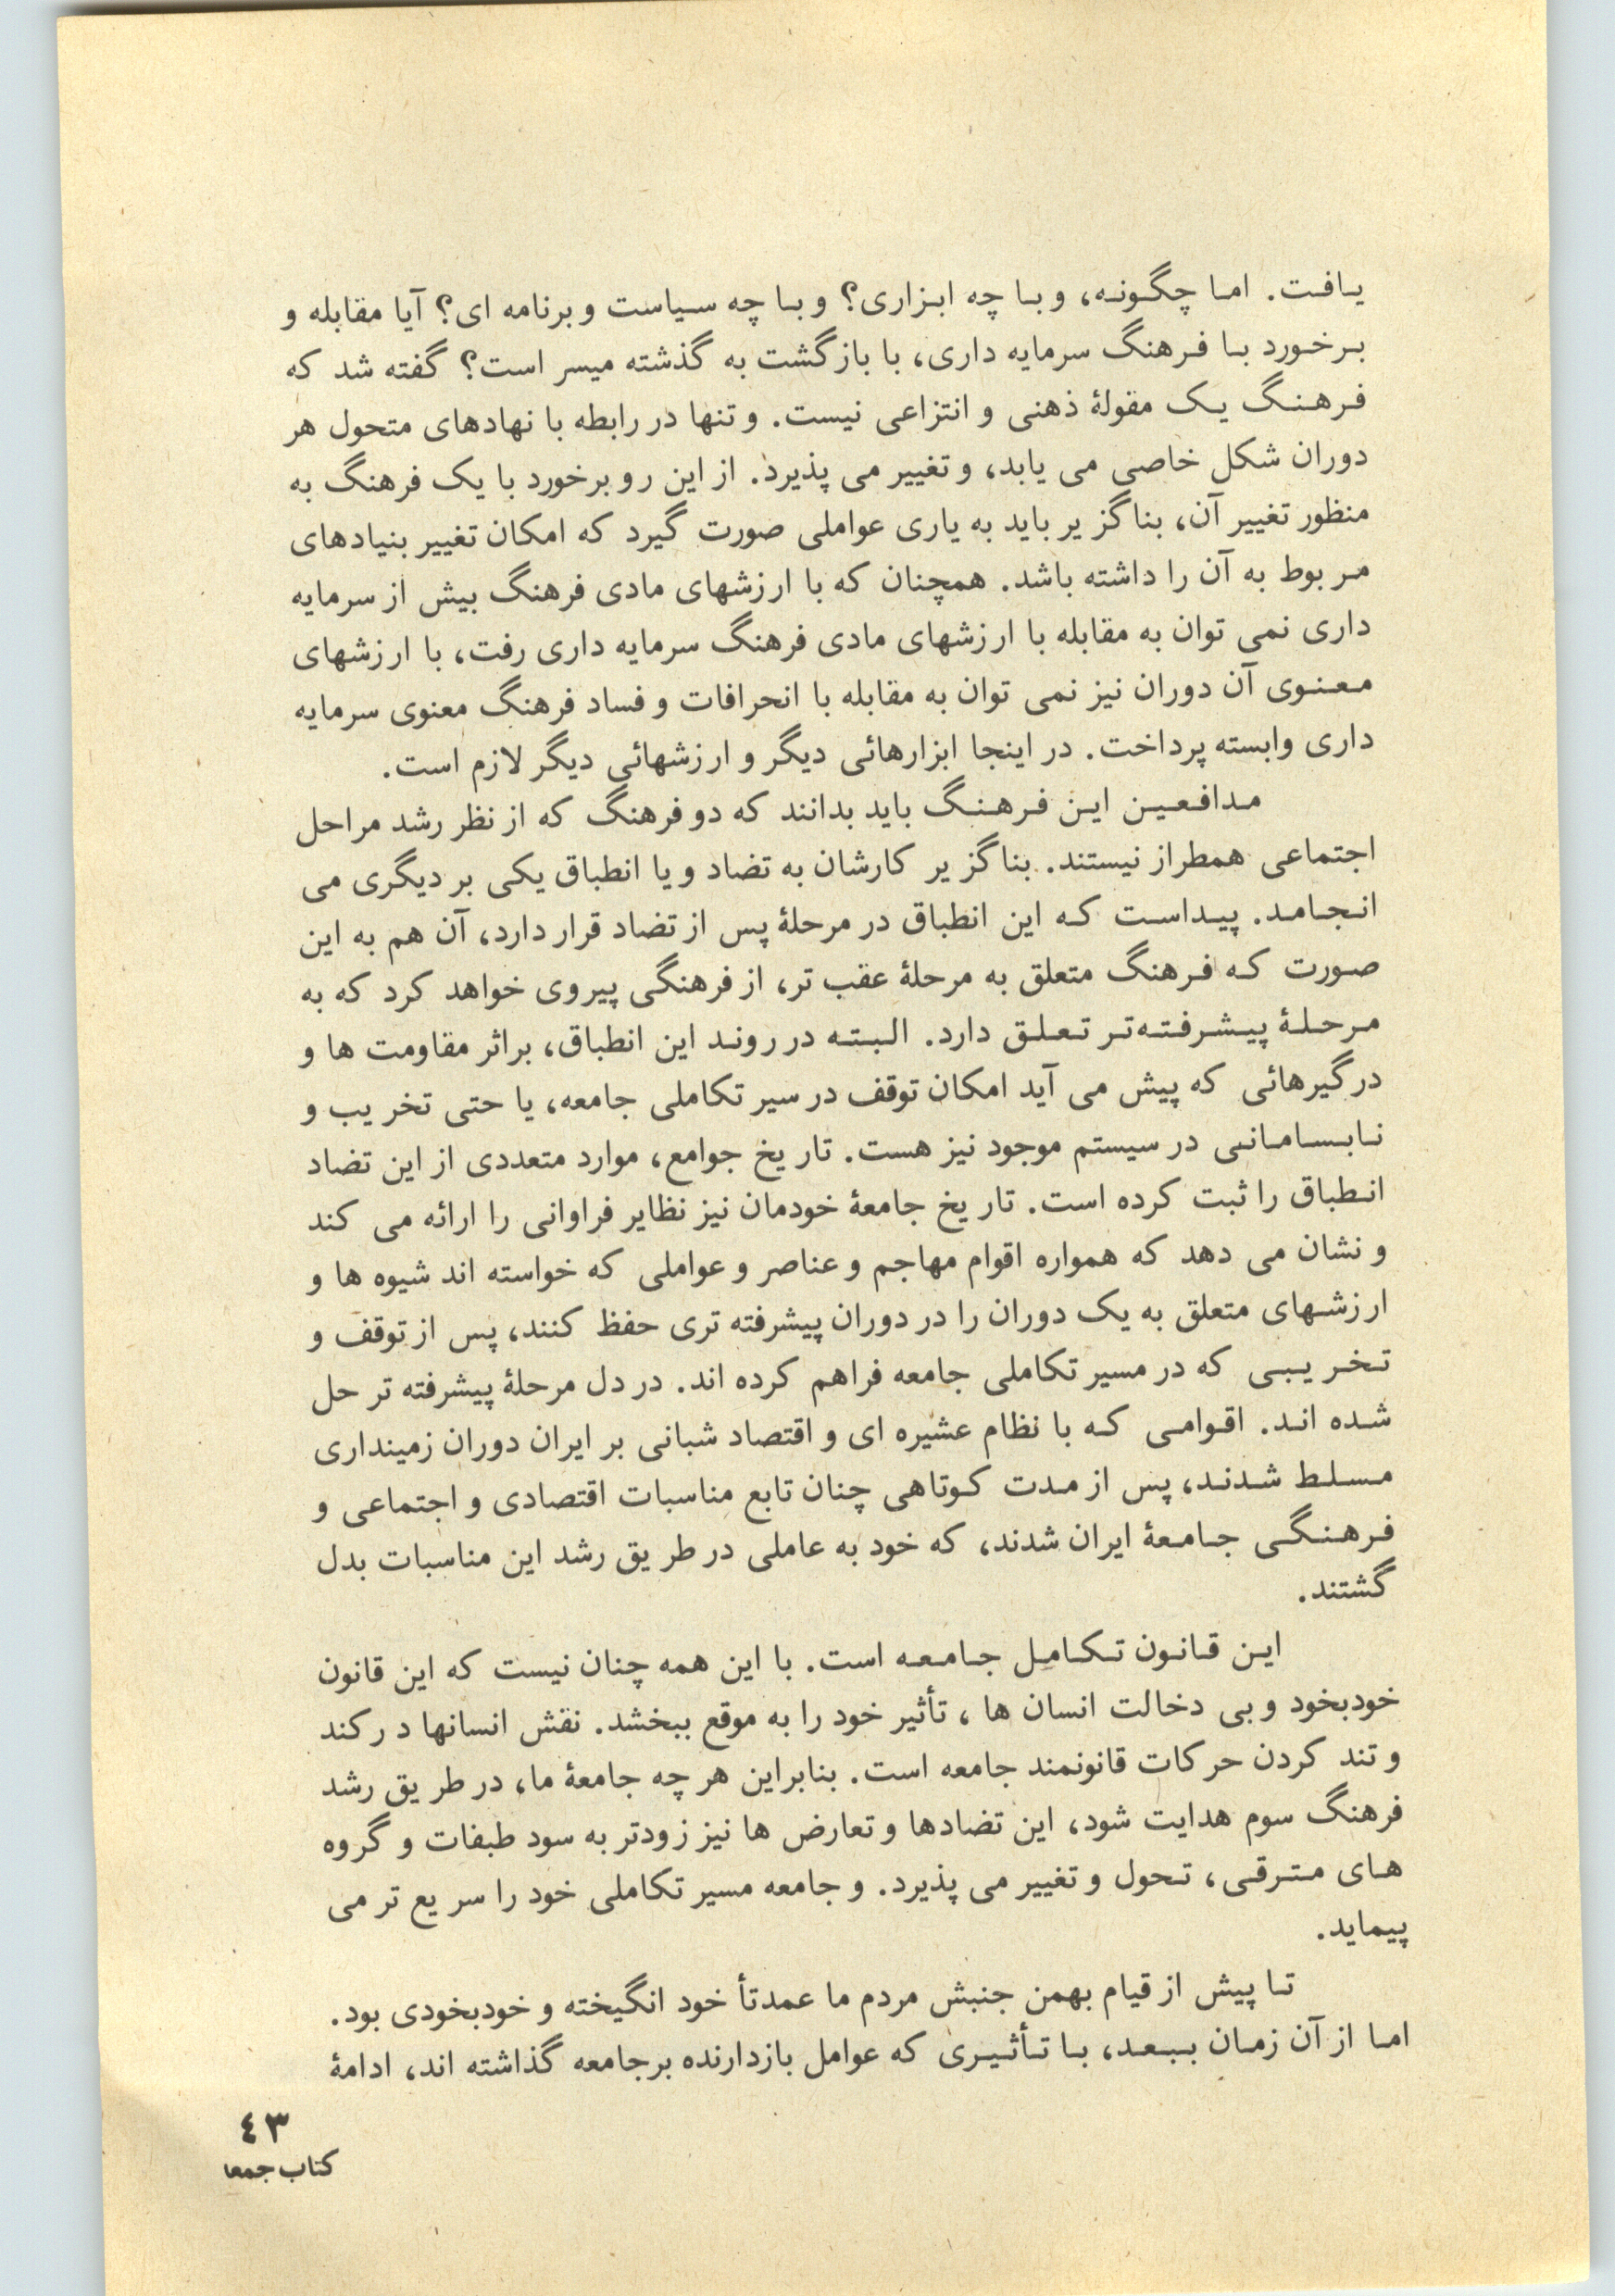 یافت. اما چگونه، و با چه ابزاری؟ و با چه سیاست و برنامه ای؟ آیا مقابله و
برخورد با فرهنگ سرمایه داری، با بازگشت به گذشته میسر است؟ گفته شد که
فرهنگ یک مقولهٔ ذهنی و انتزاعی نیست. و تنها در رابطه با نهادهای متحول هر
دوران شکل خاصی می یابد، و تغییر می پذیرد. از این رو برخورد با یک فرهنگ به
منظور تغییر آن، بناگزیر باید به یاری عواملی صورت گیرد که امکان تغییر بنیادهای
مربوط به آن را داشته باشد. همچنان که با ارزشهای مادی فرهنگ بیش از سرمایه
داری نمی توان به مقابله با ارزشهای مادی فرهنگ سرمایه داری رفت، با ارزشهای
معنوی آن دوران نیز نمی توان به مقابله با انحرافات و فساد فرهنگ معنوی سرمایه
داری وابسته پرداخت. در اینجا ابزارهائی دیگر و ارزشهائی دیگر لازم است.
مدافعین این فرهنگ باید بدانند که دو فرهنگ که از نظر رشد مراحل
اجتماعی همطراز نیستند. بناگزیر کارشان به تضاد و یا انطباق یکی بر دیگری می
انجامد. پیداست که این انطباق در مرحلهٔ پس از تضاد قرار دارد، آن هم به این
صورت که فرهنگ متعلق به مرحلهٔ عقب تر، از فرهنگی پیروی خواهد کرد که به
مرحلهٔ پیشرفته‌تر تعلق دارد. البته در روند این انطباق، براثر مقاومت ها و
درگیرهائی که پیش می آید امکان توقف در سیر تکاملی جامعه، یا حتی تخریب و
نابسامانی در سیستم موجود نیز هست. تاریخ جوامع، موارد متعددی از این تضاد
انطباق را ثبت کرده است. تاریخ جامعهٔ خودمان نیز نظایر فراوانی را ارائه می کند
و نشان می دهد که همواره اقوام مهاجم و عناصر و عواملی که خواسته اند شیوه ها و
ارزشهای متعلق به یک دوران را در دوران پیشرفته تری حفظ کنند، پس از توقف و
تخریبی که در مسیر تکاملی جامعه فراهم کرده اند. در دل مرحلهٔ پیشرفته تر حل
شده اند. اقوامی که با نظام عشیره ای و اقتصاد شبانی بر ایران دوران زمینداری
مسلط شدند، پس از مدت کوتاهی چنان تابع مناسبات اقتصادی و اجتماعی و
فرهنگی جامعهٔ ایران شدند، که خود به عاملی در طریق رشد این مناسبات بدل
گشتند.
این قانون تکامل جامعه است. با این همه چنان نیست که این قانون
خودبخود و بی دخالت انسان ها ، تأثیر خود را به موقع ببخشد. نقش انسانها در کند
و تند کردن حرکات قانونمند جامعه است. بنابراین هر چه جامعهٔ ما، در طریق رشد
فرهنگ سوم هدایت شود، این تضادها و تعارض ها نیز زودتر به سود طبفات و گروه
های مترقی، تحول و تغییر می پذیرد. و جامعه مسیر تکاملی خود را سریع تر می
پیماید.
تا پیش از قیام بهمن جنبش مردم ما عمدتأ خود انگیخته و خودبخودی بود.
اما از آن زمان ببعد، با تأثیری که عوامل بازدارنده برجامعه گذاشته اند، ادامهٔ
٤٣
کتاب جمعا